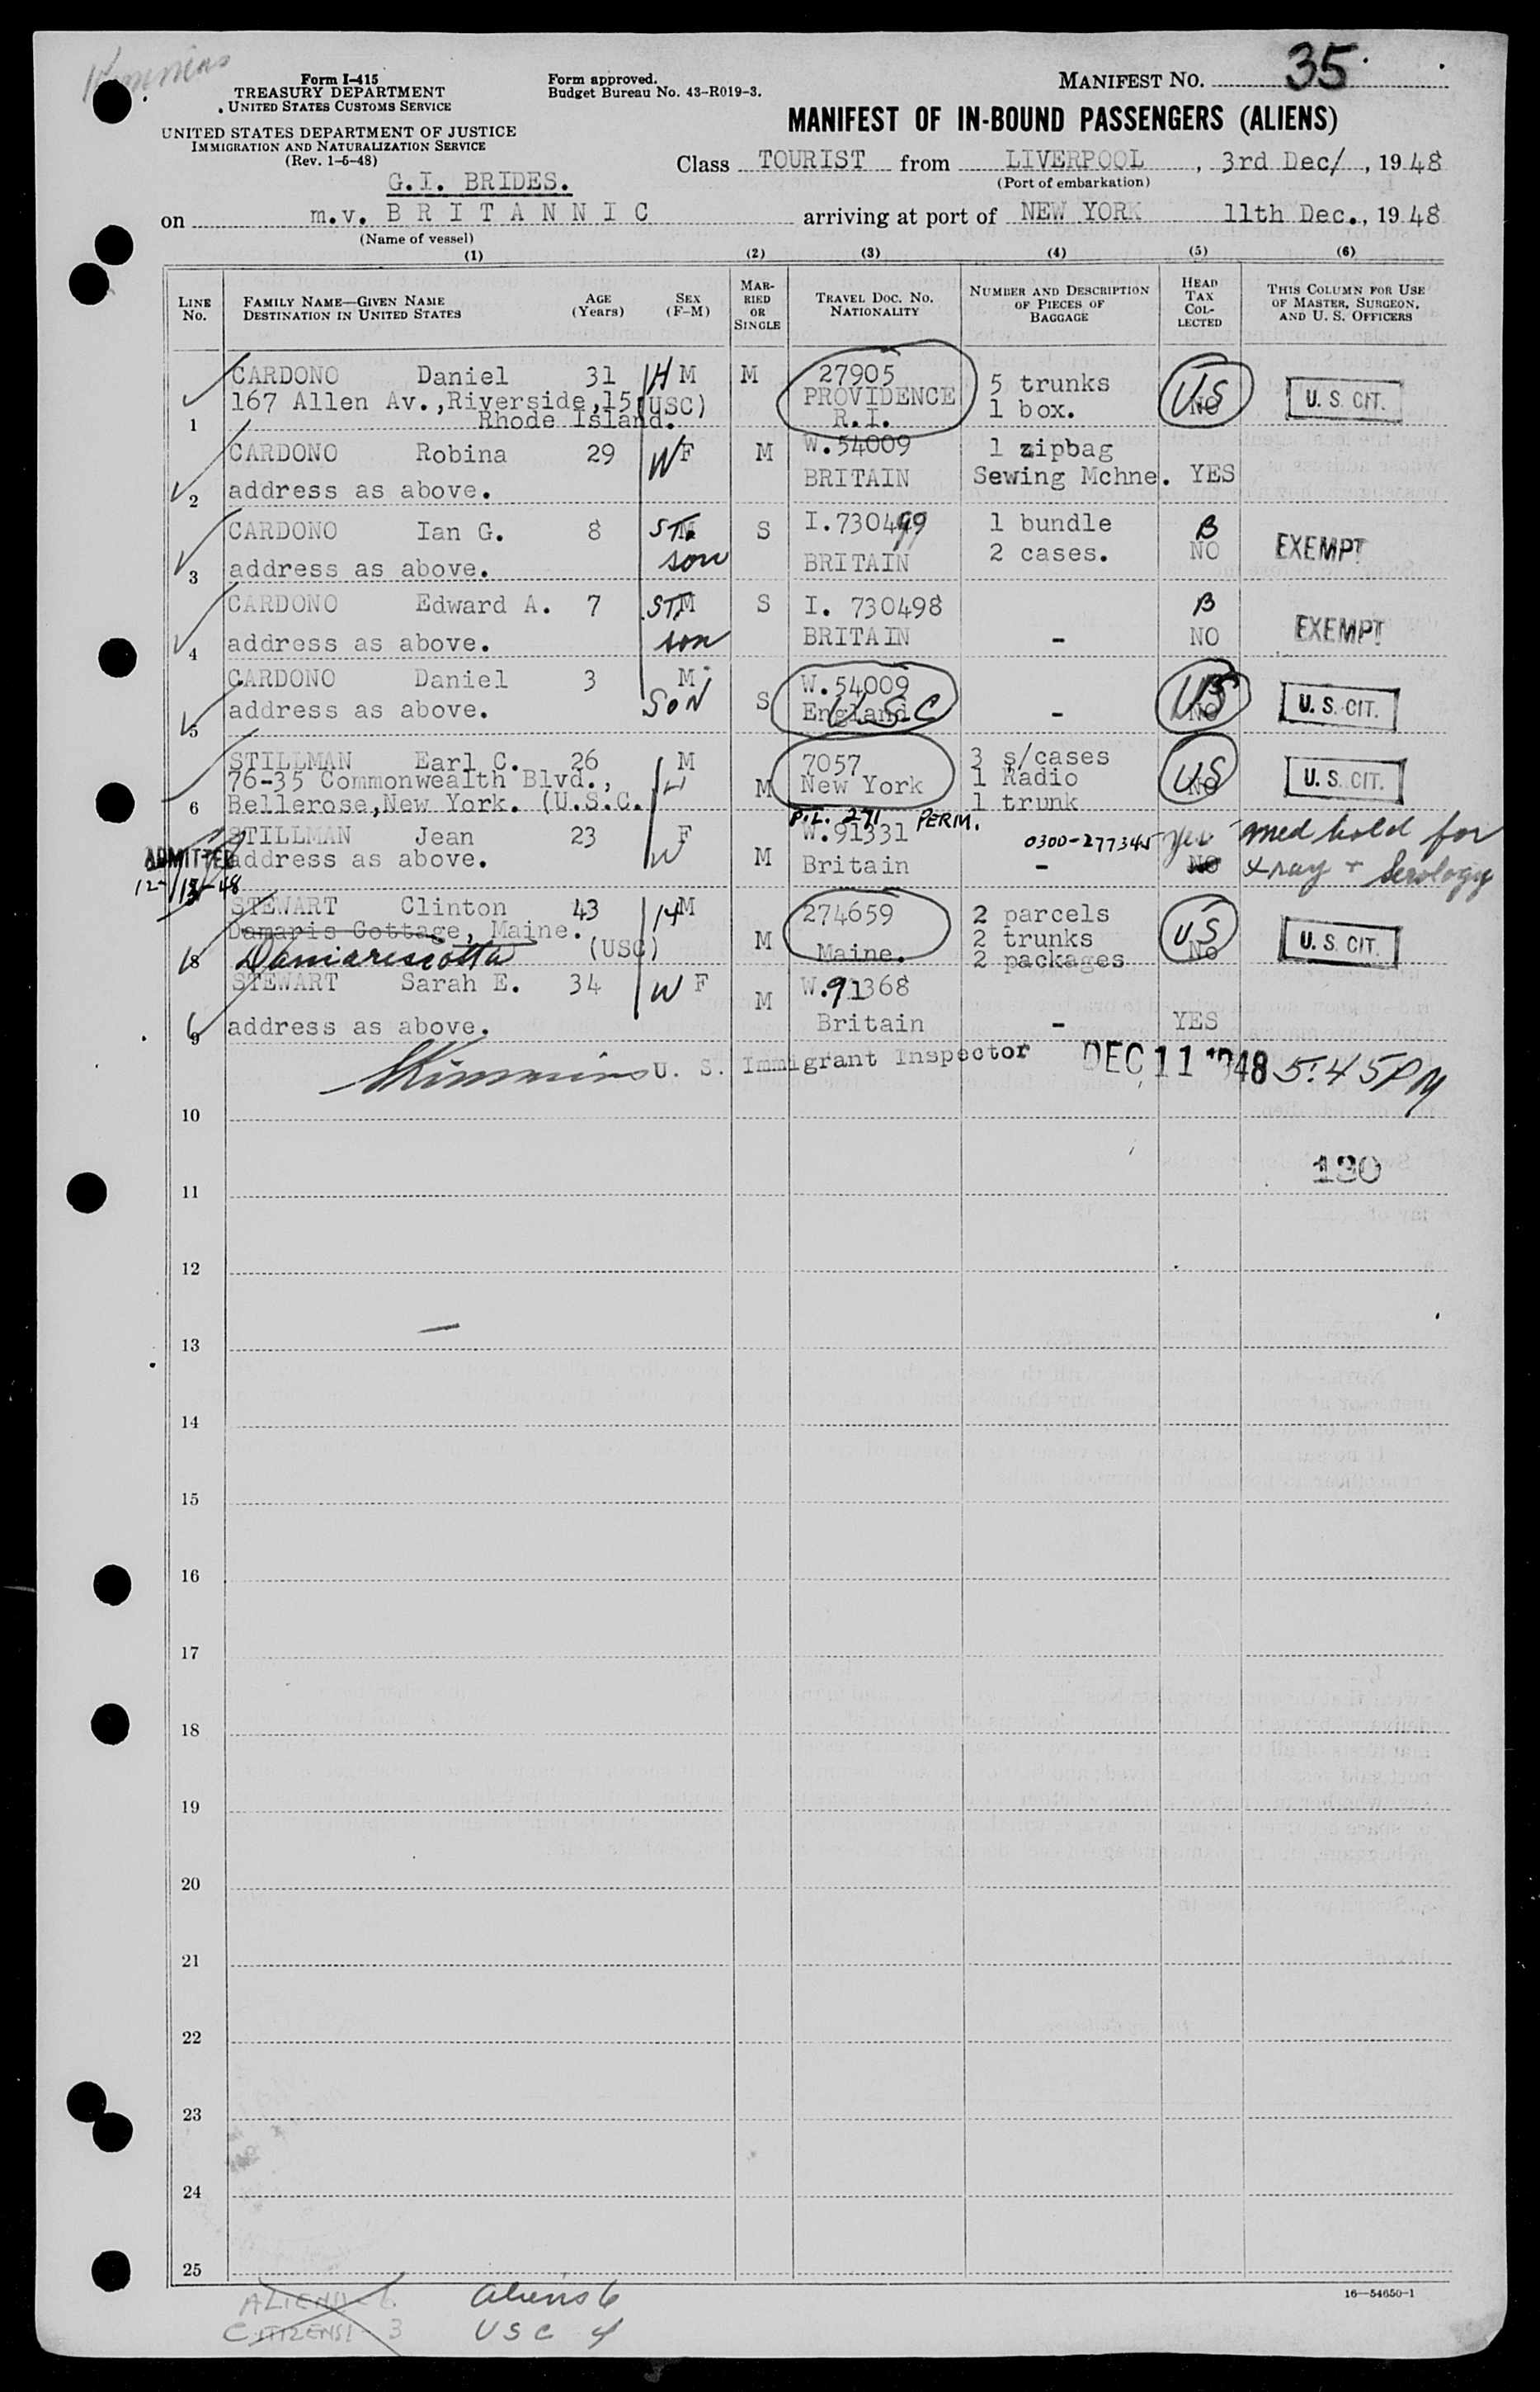 Kimmins
Form I-415
TREASURY DEPARTMENT
UNITED STATES CUSTOMS SERVICE
Form approved.
Budget Bureau No. 43-R019-3.
MANIFEST NO. 35
UNITED STATES DEPARTMENT OF JUSTICE
IMMIGRATION AND NATURALIZATION SERVICE
(Rev. 1-5-48)
MANIFEST OF IN-BOUND PASSENGERS (ALIENS)
Class TOURIST from LIVERPOOL, 3rd Dec/, 1948
(Port of embarkation)
G.I. BRIDES.
on m.v. BRITANNIC arriving at port of NEW YORK 11th Dec., 1948
(Name of vessel)
(1) (2) (3) (4) (5) (6)
LINE No.
FAMILY NAME—GIVEN NAME
DESTINATION IN UNITED STATES
AGE (Years)
SEX (F-M)
MARRIED OR SINGLE
TRAVEL DOC. NO. NATIONALITY
NUMBER AND DESCRIPTION OF PIECES OF BAGGAGE
HEAD TAX COLLECTED
THIS COLUMN FOR USE OF MASTER, SURGEON, AND U. S. OFFICERS
CARDONO Daniel 31 H M M 27905 5 trunks US NO U. S. CIT.
167 Allen Av.,Riverside,15, (USC) PROVIDENCE 1 box.
1 Rhode Island. R.I.
CARDONO Robina 29 W F M W.54009 1 zipbag
2 address as above. BRITAIN Sewing Mchne. YES
CARDONO Ian G. 8 ST. M S I.730499 1 bundle B
3 address as above. son BRITAIN 2 cases. NO EXEMPT
CARDONO Edward A. 7 ST. M S I. 730498 B
4 address as above. son BRITAIN - NO EXEMPT
CARDONO Daniel 3 M. S W.54009 US NO
5 address as above. SON England USC - U. S. CIT.
STILLMAN Earl C. 26 M 7057 3 s/cases
76-35 Commonwealth Blvd., H M New York 1 Radio US NO U. S. CIT.
6 Bellerose,New York. (U.S.C. 1 trunk
P.L. 271 PERM.
STILLMAN Jean 23 F W.91331 0300-277345 yes med hold for
ADMITTED address as above. W M Britain - NO x ray + Serology
12-13-48
STEWART Clinton 43 H M 274659 2 parcels
Damaris Cottage, Maine. M 2 trunks US NO U. S. CIT.
8 Damariscotta (USC) Maine. 2 packages
STEWART Sarah E. 34 W F M W.91368
9 address as above. Britain - YES
Kimmins U. S. Immigrant Inspector DEC 11 1948 5:45 PM
10
130
11
12
13
14
15
16
17
18
19
20
21
22
23
24
25
16—54650-1
ALIENS- 6 Aliens 6
CITIZENS! - 3 USC 4